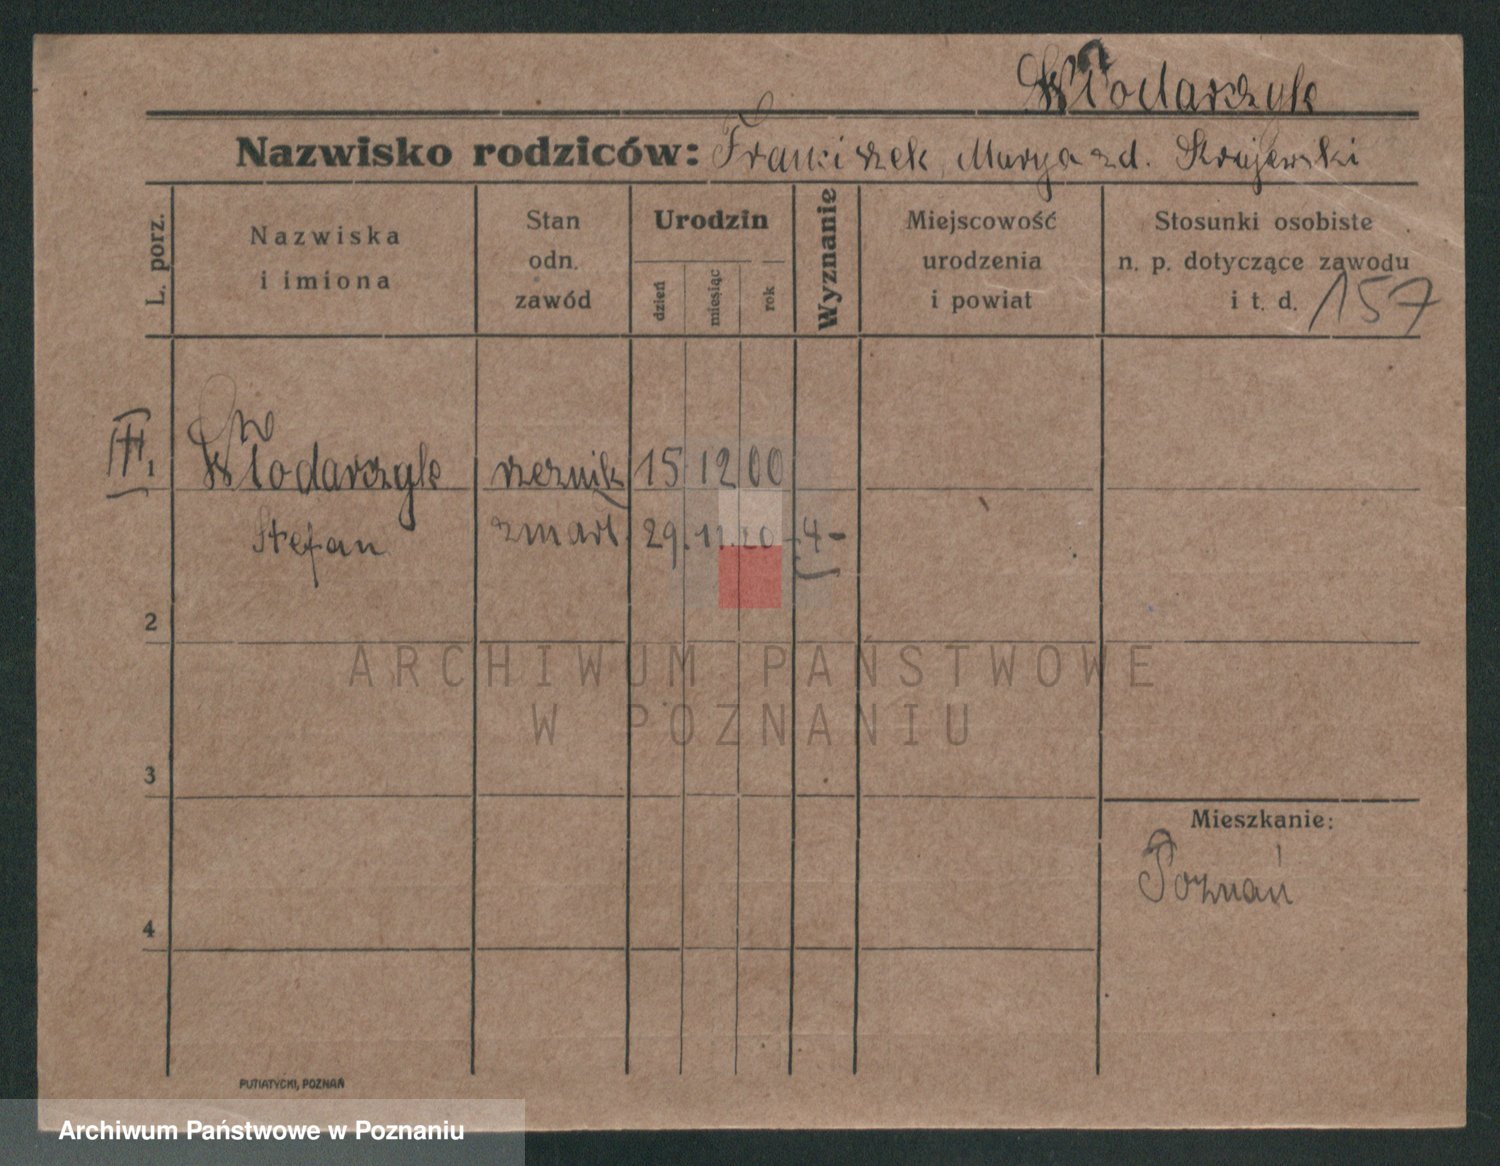 Włodarczyk
Nazwisko rodziców: Franciszek, Marya zd. Krajewski
L. porz.
Nazwiska
i imiona
Stan
odn.
zawód
Urodzin
dzień
miesiąc
rok
Wyznanie
Miejscowość
urodzenia
i powiat
Stosunki osobiste
n. p. dotyczące zawodu
i t. d. 157
1 Włodarczyk rzeznik 15 12 00
Stefan zmarł. 29.11.20 -4-
2
3
4
Mieszkanie:
Poznań
PUTIATYCKI, POZNAŃ
ARCHIWUM PAŃSTWOWE
W POZNANIU
Archiwum Państwowe w Poznaniu